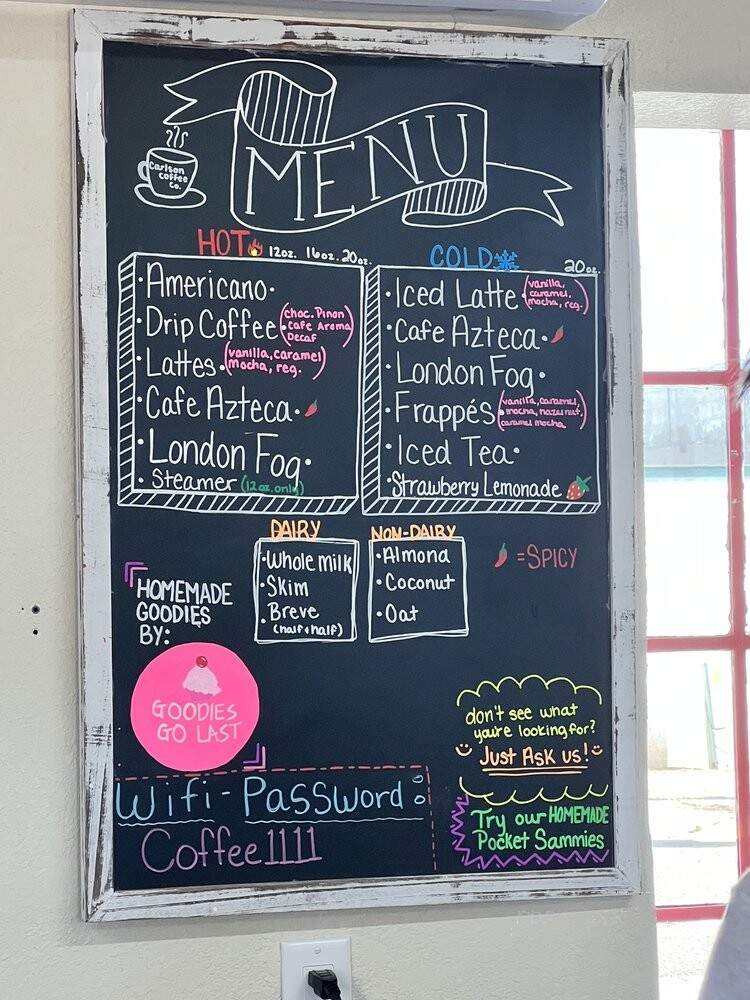 MENU
Carlson
Coffee
Co.
HOT 12oz. 16oz. 20oz.
• Americano •
• Drip Coffee • (choc. Pinon
Cafe Aroma
Decaf)
• Lattes • (vanilla, caramel
mocha, reg.)
• Cafe Azteca •
• London Fog •
• Steamer (12oz. only)
COLD 20oz.
• Iced Latte • (vanilla,
caramel,
mocha, reg.)
• Cafe Azteca •
• London Fog •
• Frappés • (vanilla, caramel,
mocha, hazelnut,
caramel mocha)
• Iced Tea •
• Strawberry Lemonade
DAIRY
• Whole milk
• Skim
• Breve
(half & half)
NON-DAIRY
• Almond
• Coconut
• Oat
= SPICY
HOMEMADE
GOODIES
BY:
GOODIES
GO LAST
don't see what
you're looking for?
Just Ask us!
Try our HOMEMADE
Pocket Sammies
Wifi - Password:
Coffee1111